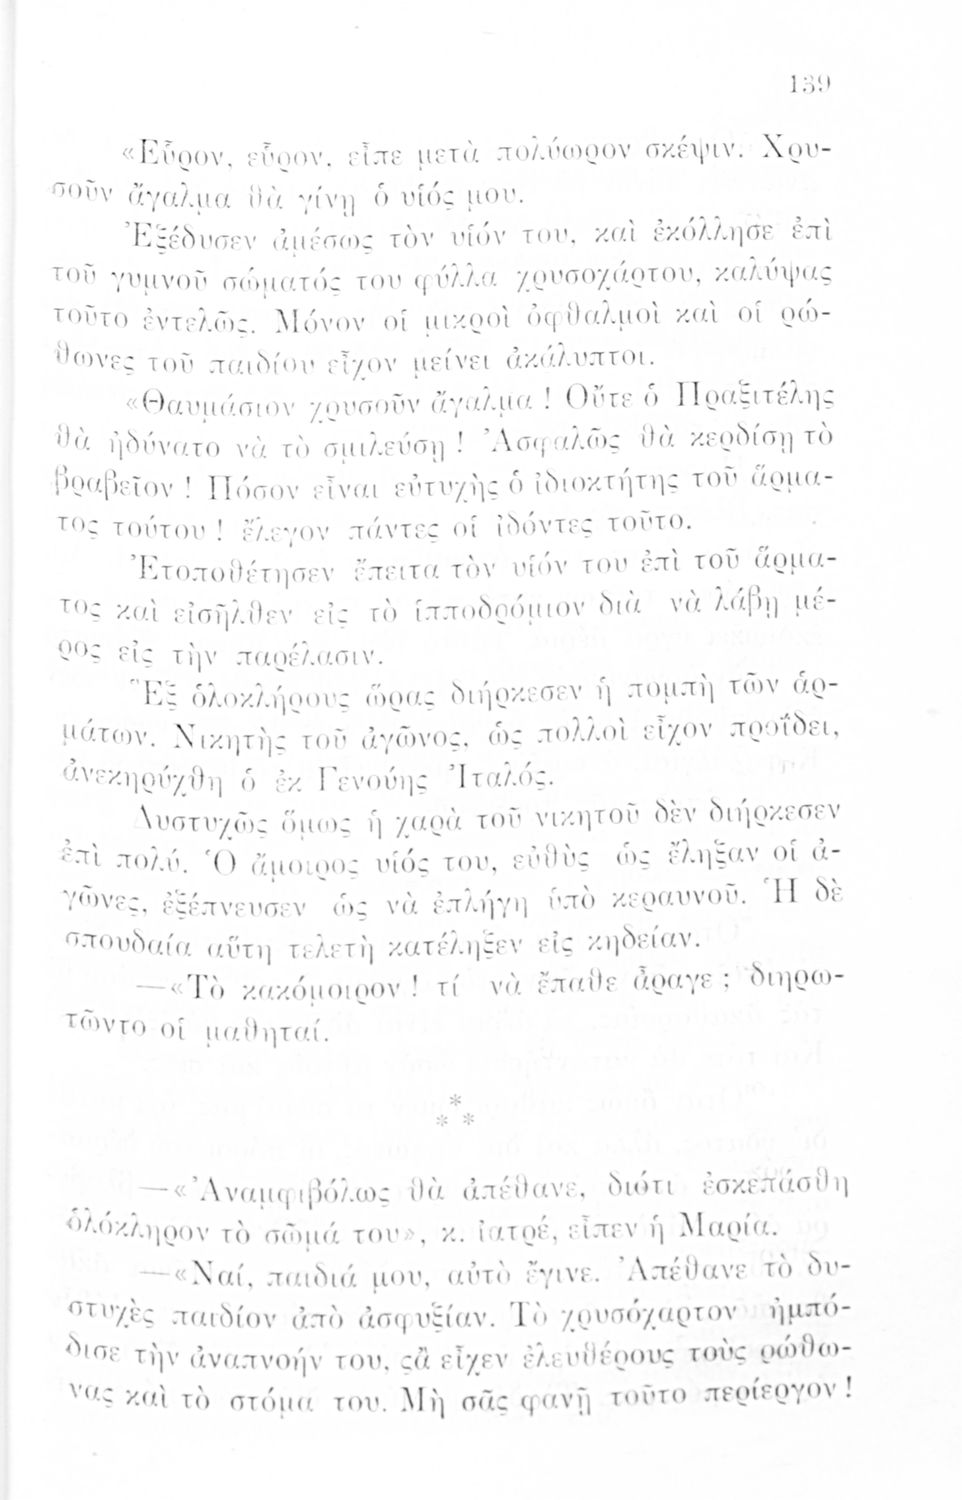 139
«Εὗρον, εὗρον, εἶπε μετὰ πολύωρον σκέψιν. Χρυ-
σοῦν ἄγαλμα θὰ γίνῃ ὁ υἱός μου.
Ἐξέδυσεν ἀμέσως τὸν υἱόν του, καὶ ἐκόλλησε ἐπὶ
τοῦ γυμνοῦ σώματός του φύλλα χρυσοχάρτου, καλύψας
τοῦτο ἐντελῶς. Μόνον οἱ μικροὶ ὀφθαλμοὶ καὶ οἱ ρώ-
θωνες τοῦ παιδίου εἶχον μείνει ἀκάλυπτοι.
«Θαυμάσιον χρυσοῦν ἄγαλμα ! Οὔτε ὁ Πραξιτέλης
θὰ ἠδύνατο νὰ τὸ σμιλεύσῃ ! Ἀσφαλῶς θὰ κερδίσῃ τὸ
βραβεῖον ! Πόσον εἶναι εὐτυχὴς ὁ ἰδιοκτήτης τοῦ ἅρμα-
τος τούτου ! ἔλεγον πάντες οἱ ἰδόντες τοῦτο.
Ἐτοποθέτησεν ἔπειτα τὸν υἱόν του ἐπὶ τοῦ ἅρμα-
τος καὶ εἰσῆλθεν εἰς τὸ ἱπποδρόμιον διὰ νὰ λάβῃ μέ-
ρος εἰς τὴν παρέλασιν.
Ἓξ ὁλοκλήρους ὥρας διήρκεσεν ἡ πομπὴ τῶν ἁρ-
μάτων. Νικητὴς τοῦ ἀγῶνος, ὡς πολλοὶ εἶχον προΐδει,
ἀνεκηρύχθη ὁ ἐκ Γενούης Ἰταλός.
Δυστυχῶς ὅμως ἡ χαρὰ τοῦ νικητοῦ δὲν διήρκεσεν
ἐπὶ πολύ. Ὁ ἄμοιρος υἱός του, εὐθὺς ὡς ἔληξαν οἱ ἀ-
γῶνες, ἐξέπνευσεν ὡς νὰ ἐπλήγη ὑπὸ κεραυνοῦ. Ἡ δὲ
σπουδαία αὕτη τελετὴ κατέληξεν εἰς κηδείαν.
—«Τὸ κακόμοιρον ! τί νὰ ἔπαθε ἆραγε ; διηρω-
τῶντο οἱ μαθηταί.
*
* *
—«Ἀναμφιβόλως θὰ ἀπέθανε, διότι ἐσκεπάσθη
ὁλόκληρον τὸ σῶμά του», κ. ἰατρέ, εἶπεν ἡ Μαρία.
—«Ναί, παιδιά μου, αὐτὸ ἔγινε. Ἀπέθανε τὸ δυ-
στυχὲς παιδίον ἀπὸ ἀσφυξίαν. Τὸ χρυσόχαρτον ἠμπό-
δισε τὴν ἀναπνοήν του, ςἂ εἶχεν ἐλευθέρους τοὺς ρώθω-
νας καὶ τὸ στόμα του. Μὴ σᾶς φανῇ τοῦτο περίεργον !